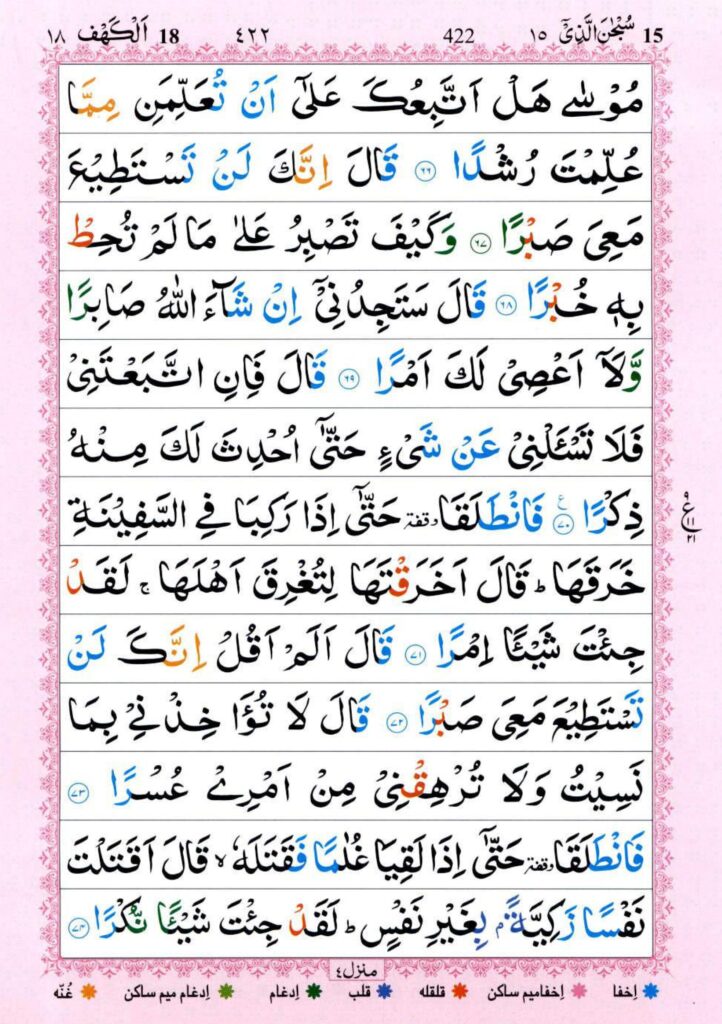 15 سُبْحٰنَ الَّذِیْۤ ١٥ 422 ٤٢٢ 18 اَلْکَهْف ١٨
مُوْسٰى هَلْ اَتَّبِعُكَ عَلٰۤى اَنْ تُعَلِّمَنِ مِمَّا
عُلِّمْتَ رُشْدًا ۝٦٦ قَالَ اِنَّكَ لَنْ تَسْتَطِيْعَ
مَعِىَ صَبْرًا ۝٦٧ وَكَيْفَ تَصْبِرُ عَلٰى مَا لَمْ تُحِطْ
بِهٖ خُبْرًا ۝٦٨ قَالَ سَتَجِدُنِىْۤ اِنْ شَآءَ اللّٰهُ صَابِرًا
وَّلَاۤ اَعْصِىْ لَكَ اَمْرًا ۝٦٩ قَالَ فَاِنِ اتَّبَعْتَنِىْ
فَلَا تَسْئَلْنِىْ عَنْ شَىْءٍ حَتّٰۤى اُحْدِثَ لَكَ مِنْهُ
ذِكْرًا ۝٧٠ ع فَانْطَلَقَا وقفة حَتّٰۤى اِذَا رَكِبَا فِى السَّفِيْنَةِ
ع ٩ ١١ ٢١
خَرَقَهَا ؕ قَالَ اَخَرَقْتَهَا لِتُغْرِقَ اَهْلَهَا ۚ لَقَدْ
جِئْتَ شَيْـًٔا اِمْرًا ۝٧١ قَالَ اَلَمْ اَقُلْ اِنَّكَ لَنْ
تَسْتَطِيْعَ مَعِىَ صَبْرًا ۝٧٢ قَالَ لَا تُؤَا خِذْنِىْ بِمَا
نَسِيْتُ وَلَا تُرْهِقْنِىْ مِنْ اَمْرِىْ عُسْرًا ۝٧٣
فَانْطَلَقَا وقفة حَتّٰۤى اِذَا لَقِيَا غُلٰمًا فَقَتَلَهٗ ۙ قَالَ اَقَتَلْتَ
نَفْسًا زَكِيَّةًۢ بِغَيْرِ نَفْسٍ ؕ لَقَدْ جِئْتَ شَيْـًٔا نُّكْرًا ۝٧٤
منزل ٤
اِخفا اِخفامیم ساکن قلقله قلب اِدغام اِدغام میم ساکن غُنّه